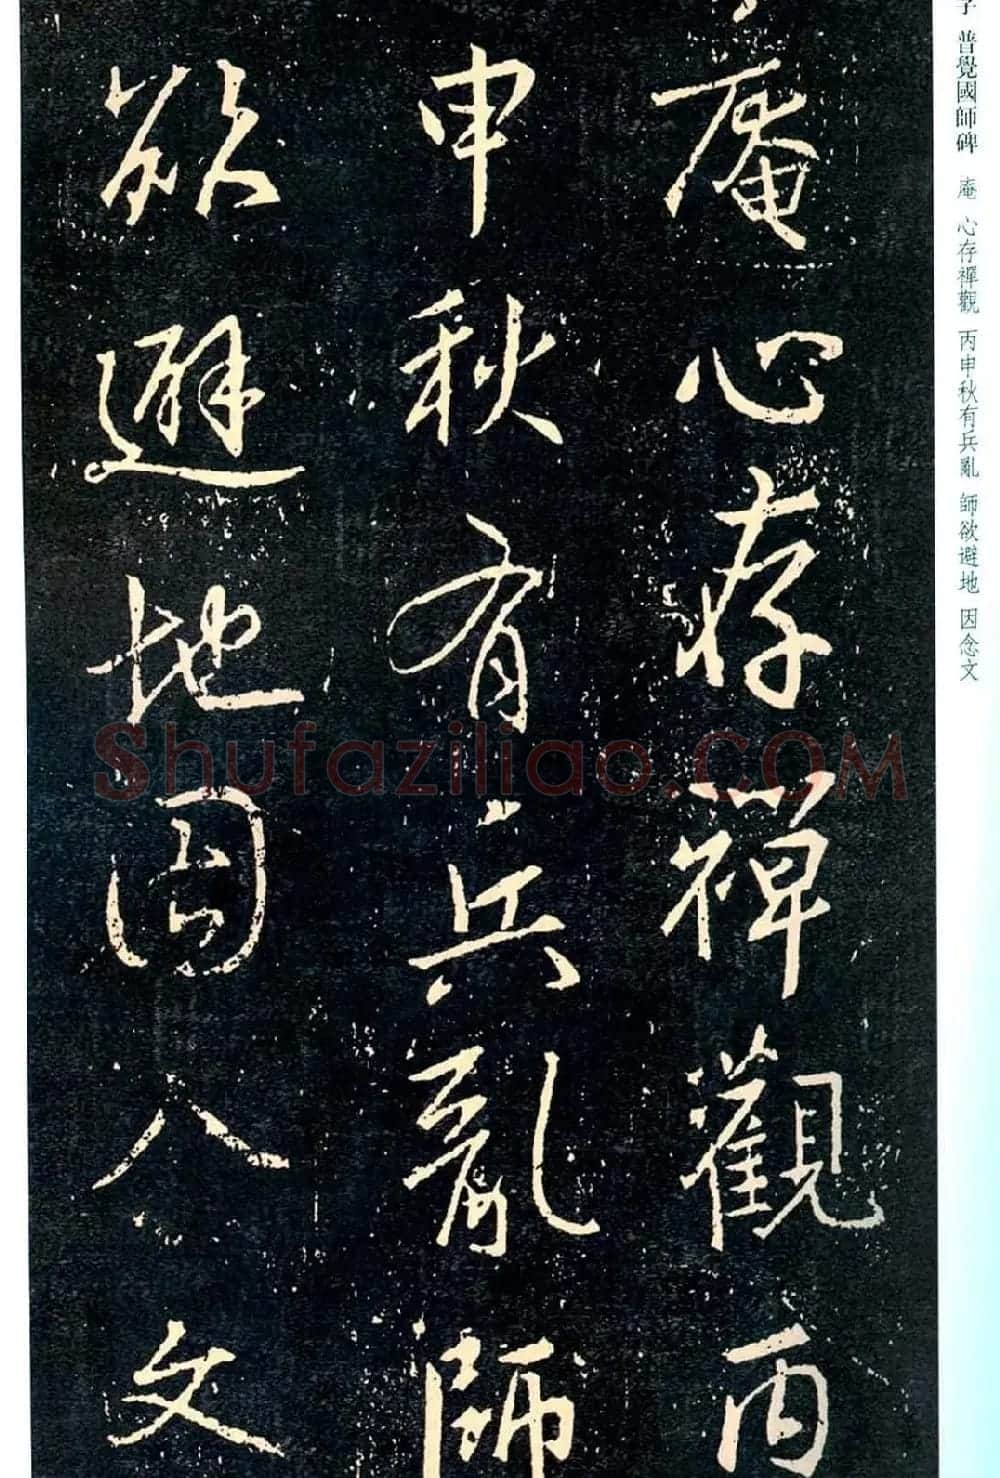 庵心存禪觀丙
申秋有兵亂師
欲避地因念文
子 普覺國師碑 庵 心存禪觀 丙申秋有兵亂 師欲避地 因念文
Shufaziliao.COM